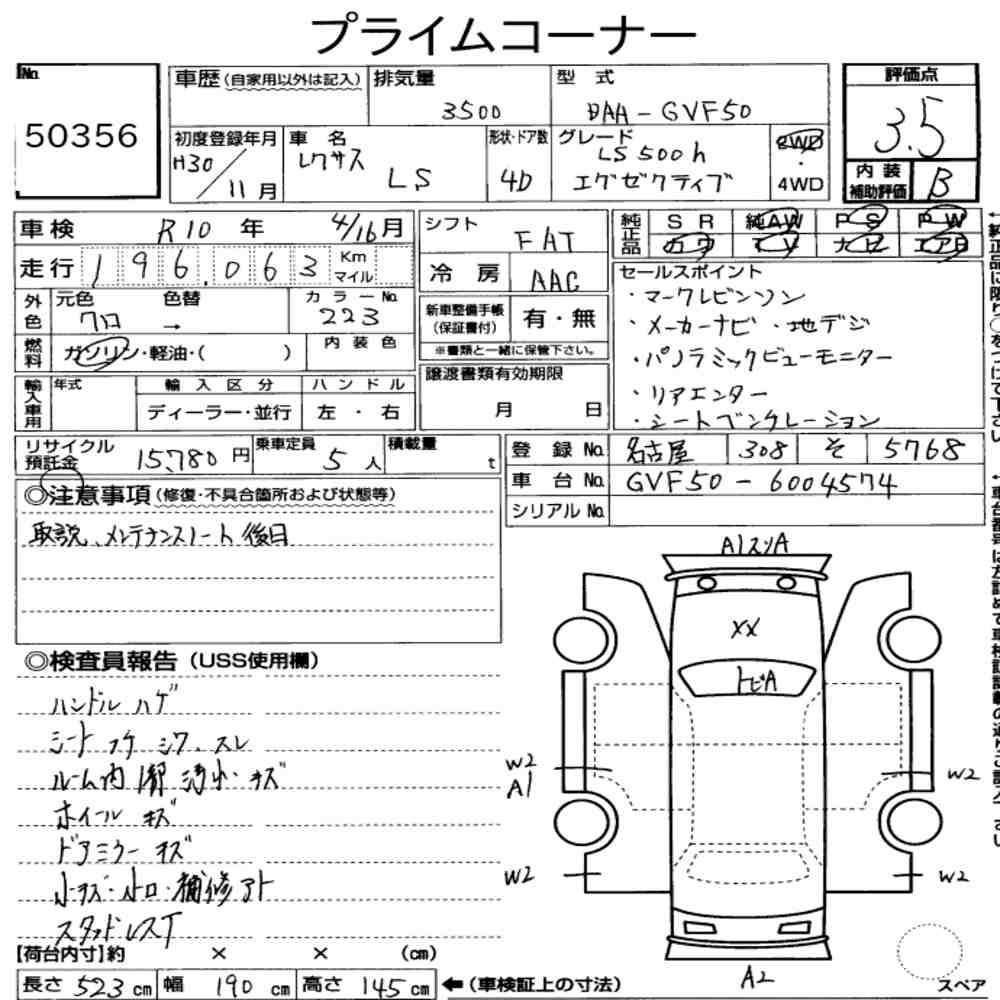 プライムコーナー
No.
50356
車歴(自家用以外は記入)
排気量
3500
型 式
DAA-GVF50
評価点
3.5
初度登録年月
H30/11月
車 名
レクサス
LS
形状・ドア数
4D
グレード
LS500h
エグゼクティブ
2WD
・
4WD
内装
補助評価
B
車検 R10 年 4/16月
シフト
FAT
純正品
SR 純AW PS PW
カワ TV ナビ エアB
走行 196,063 Km
マイル
冷 房
AAC
セールスポイント
・マークレビンソン
・メーカーナビ・地デジ
・パノラミックビューモニター
・リアエンター
・シートベンチレーション
外色
元色 色替
クロ →
カラーNo.
223
新車整備手帳
(保証書付)
有・無
※書類と一緒に保管下さい。
燃料
ガソリン・軽油・( )
内装色
譲渡書類有効期限
月 日
輸入車用
年式
輸入区分
ディーラー・並行
ハンドル
左・右
リサイクル
預託金
15,780円
乗車定員
5人
積載量
t
登 録 No. 名古屋 308 そ 5768
車 台 No. GVF50-6004574
シリアル No.
◎注意事項(修復・不具合箇所および状態等)
取説、メンテナンスノート後日
◎検査員報告(USS使用欄)
ハンドル ハゲ
シート コゲ シワ、スレ
ルーム内
キズ
ホイール キズ
ドアミラー キズ
小キズ・小凹・補修アト
スタッドレスT
A1スリA
XX
トビA
W2
A1
W2
W2
W2
A2
スペア
【荷台内寸】約 × × (cm)
長さ 523 cm 幅 190 cm 高さ 145 cm ←(車検証上の寸法)
↓純正品に限り○をつけて下さい